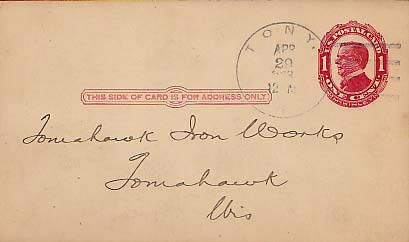 TONY.
APR
29
12 M
U.S. POSTAL CARD
1 1
ONE CENT
McKINLEY
THIS SIDE OF CARD IS FOR ADDRESS ONLY
Tomahawk Iron Works
Tomahawk
Wis